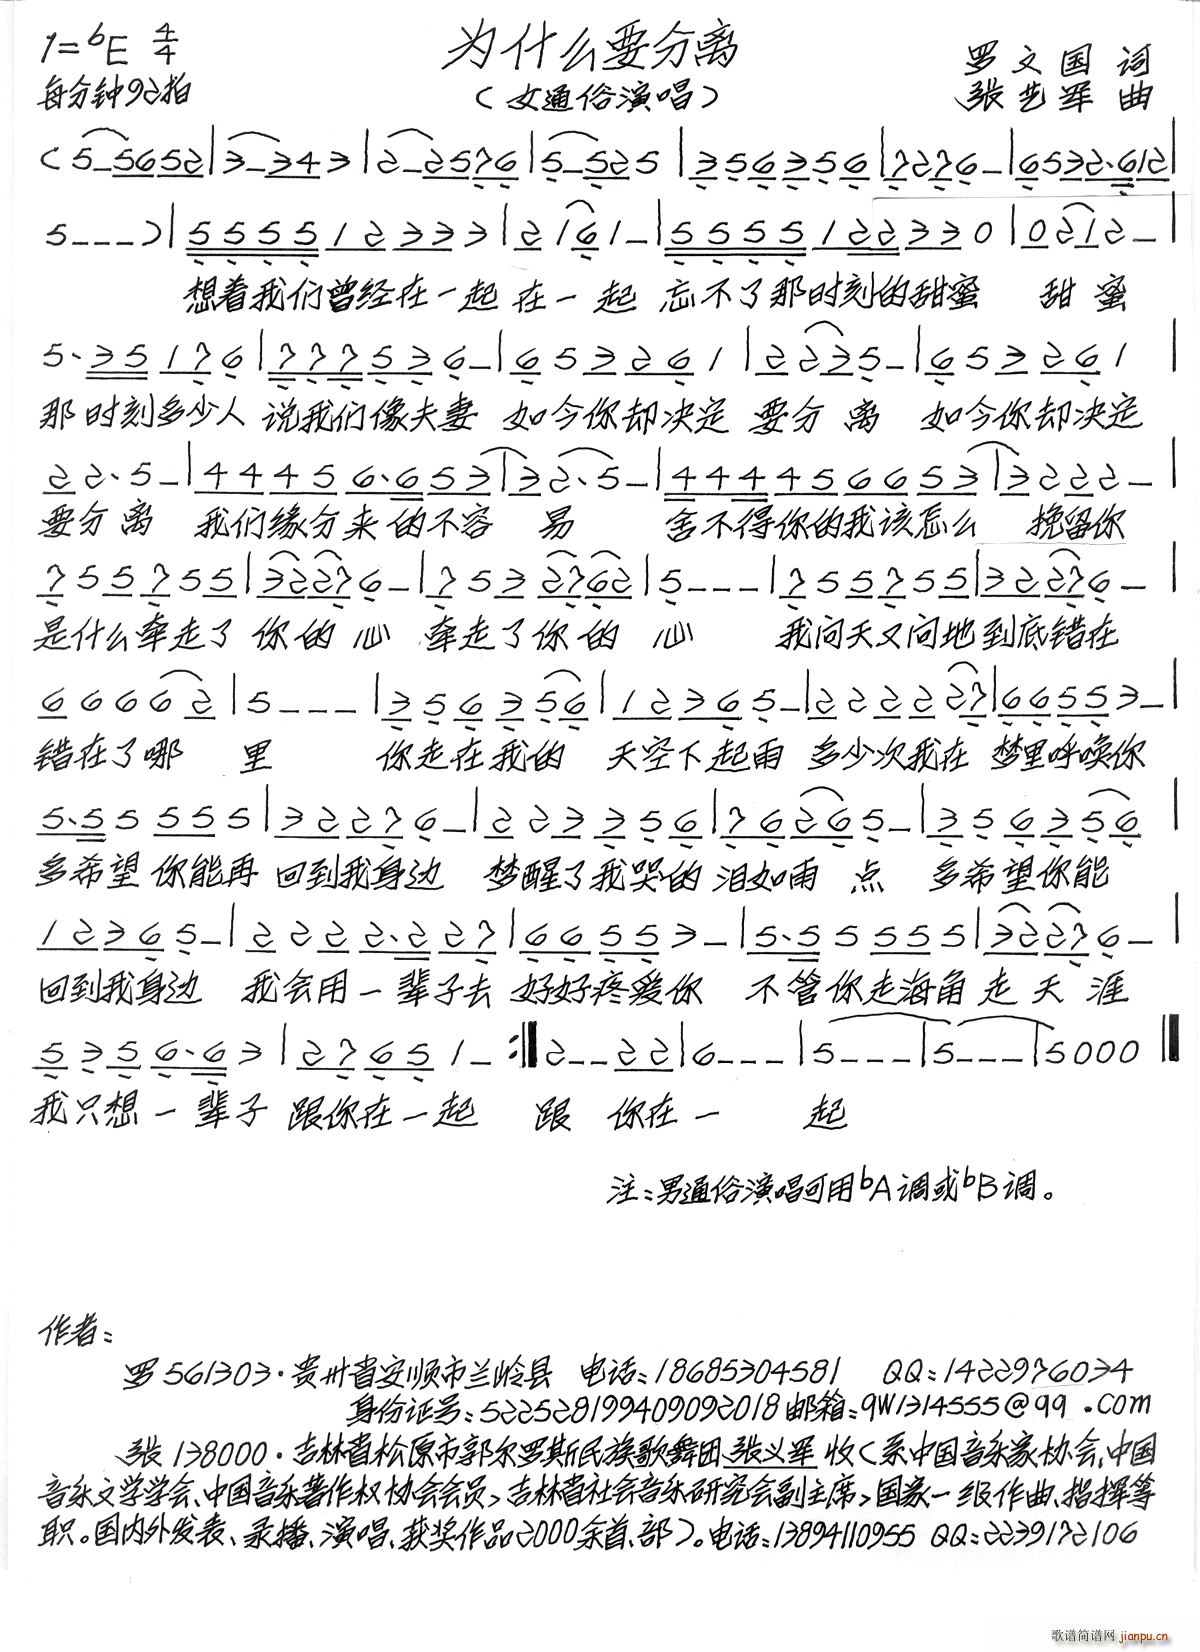 1=♭E 4/4
为什么要分离
每分钟92拍
(女通俗演唱)
罗文国 词
张艺军 曲
(5_5652|3_343|2_2576|5_525|356356|7276_|6532·612|
5___)|555512333|2161_|5555122330|0212_|
想着我们曾经在一起在一起 忘不了那时刻的甜蜜 甜蜜
5·35176|777536_|653261|2235_|653261|
那时刻多少人 说我们像夫妻 如今你却决定 要分离 如今你却决定
22·5_|44456·653|32·5_|444566653|3222_|
要分离 我们缘分来的不容易 舍不得你的我该怎么 挽留你
755755|32276_|7532762|5___|755755|32276_|
是什么牵走了你的心 牵走了你的心 我问天又问地到底错在
66662|5___|356356|12365_|222227|66553_|
错在了哪里 你走在我的 天空下起雨 多少次我在 梦里呼唤你
5·55555|32276_|223356|76265_|356356|
多希望你能再 回到我身边 梦醒了我哭的泪如雨点 多希望你能
12365_|2222·227|66553_|5·55555|32276_|
回到我身边 我会用一辈子去 好好疼爱你 不管你走海角走天涯
5356·63|27651_:‖2__22|6___|5___|5___|5000‖
我只想一辈子 跟你在一起 跟 你在一 起
注:男通俗演唱可用♭A调或♭B调。
作者:
罗561303·贵州省安顺市兰岭县 电话:18685304581 QQ:1422976034
身份证号:522528199409092018邮箱:qw1314555@qq.com
张138000·吉林省松原市郭尔罗斯民族歌舞团张义军收(系中国音乐家协会,中国
音乐文学学会、中国音乐著作权协会会员,吉林省社会音乐研究会副主席,国家一级作曲、指挥等
职。国内外发表、录播、演唱、获奖作品2000余首、部)。电话:13894110955 QQ:2239172106
歌谱简谱网
jianpu.cn